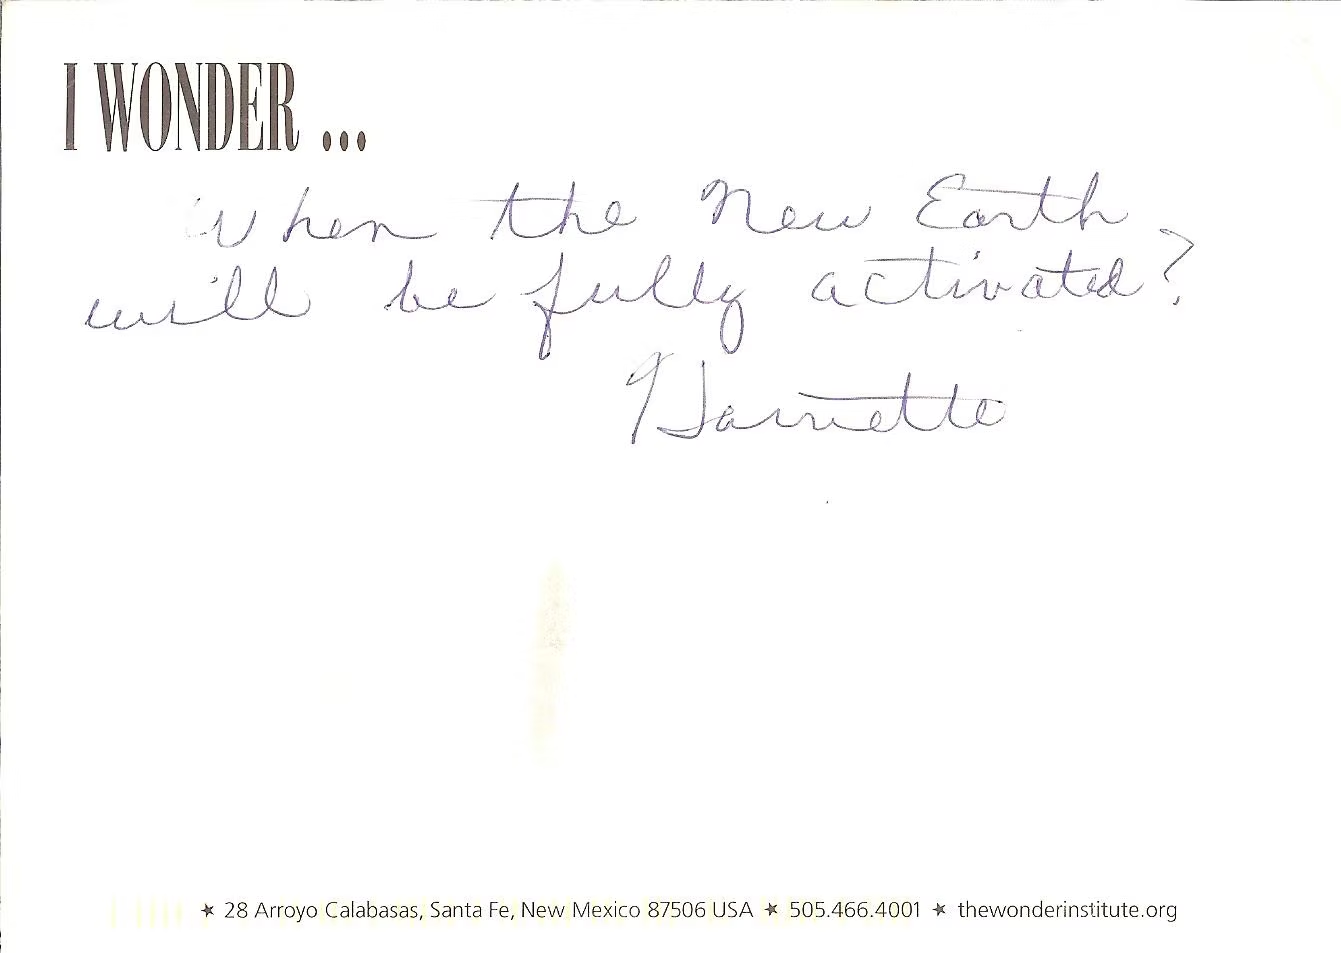 I WONDER ...
When the New Earth
will be fully activated?
Harriette
★ 28 Arroyo Calabasas, Santa Fe, New Mexico 87506 USA ★ 505.466.4001 ★ thewonderinstitute.org